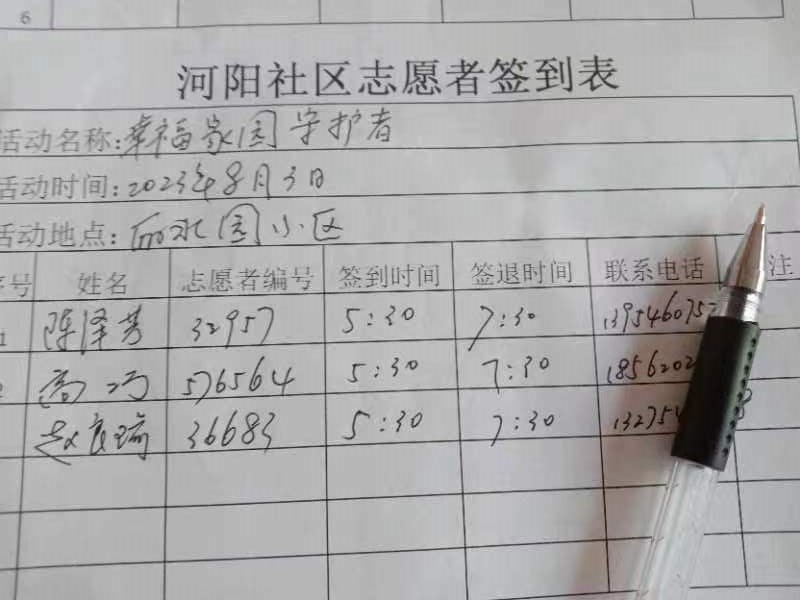 6
河阳社区志愿者签到表
活动名称:幸福家园守护者
活动时间:2023年8月3日
活动地点:丽水园小区
序号 姓名 志愿者编号 签到时间 签退时间 联系电话 注
1 陈泽芳 32957 5:30 7:30 139546075
高巧 576564 5:30 7:30 1856202
赵良瑞 36683 5:30 7:30 13275